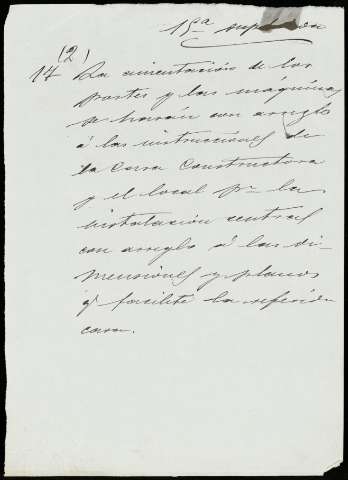 15ª
(2)
14 La cimentación de los
postes y las máquinas
se harán con arreglo
á las instrucciones de
la Casa Constructora
y el local pª la
instalación central
con arreglo á las di-
mensiones y planos
q facilite la referida
casa.